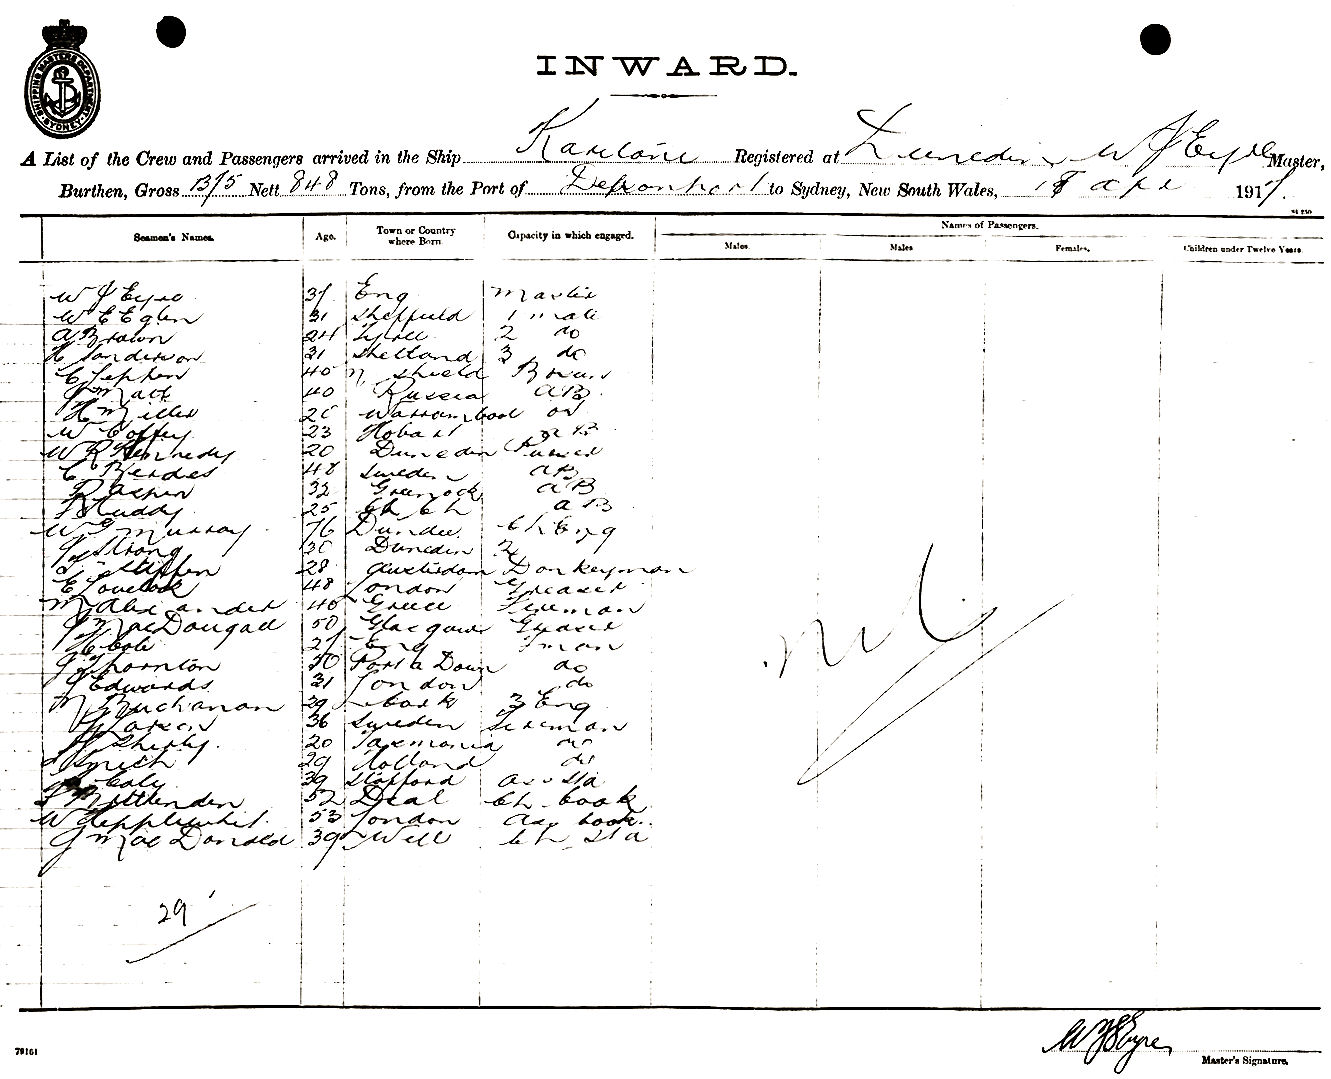 SHIPPING MASTERS DEPARTMENT SYDNEY
INWARD.
A List of the Crew and Passengers arrived in the Ship Registered at Dunedin W J Eyre Master,
Burthen, Gross 1375 Nett 848 Tons, from the Port of Devonport to Sydney, New South Wales, 18 Apl 1917.
Seamen's Names. Age. Town or Country where Born. Capacity in which engaged. Names of Passengers.
Males. Males Females. Children under Twelve Years.
W J Eyre 37 Eng Master
W E Eglen 31 Sheffield 1 mate
A Brown 24 2 do
H Sanderson 31 Shetland 3 do
40 N Shield Bosun
J Matt 40 Russia AB
H Miller Warrambool os
W Coffey 23 Hobart AB
W R Kennedy 20 Dunedin Purser
48 Sweden AB
32 Greenock AB
Ruddy 25 Ch Ch AB
W G Murray 76 Dundee Ch Eng
J Strong 30 Dunedin 2
28 Amsterdam Donkeyman
E Lovelock 48 London Greaser
M Alexander 40 Greece Fireman
J MacDougall 50 Glasgow Greaser
H Cole 27 Eng Fman
J Thornton 50 Porta Down do
J Edwards 31 London do
M Buchanan 29 Cork 3 Eng
Larsen 36 Sweden Fireman
H Sherly 20 Tasmania do
Smith 29 Holland do
39 Stafford Ass Sta
F Mittenden 52 Deal Ch Cook
W Hepplewhit 53 London Ass Cook
J MacDonald 39 Ch Sta
Nil
29
W J Eyre
Master's Signature.
79161